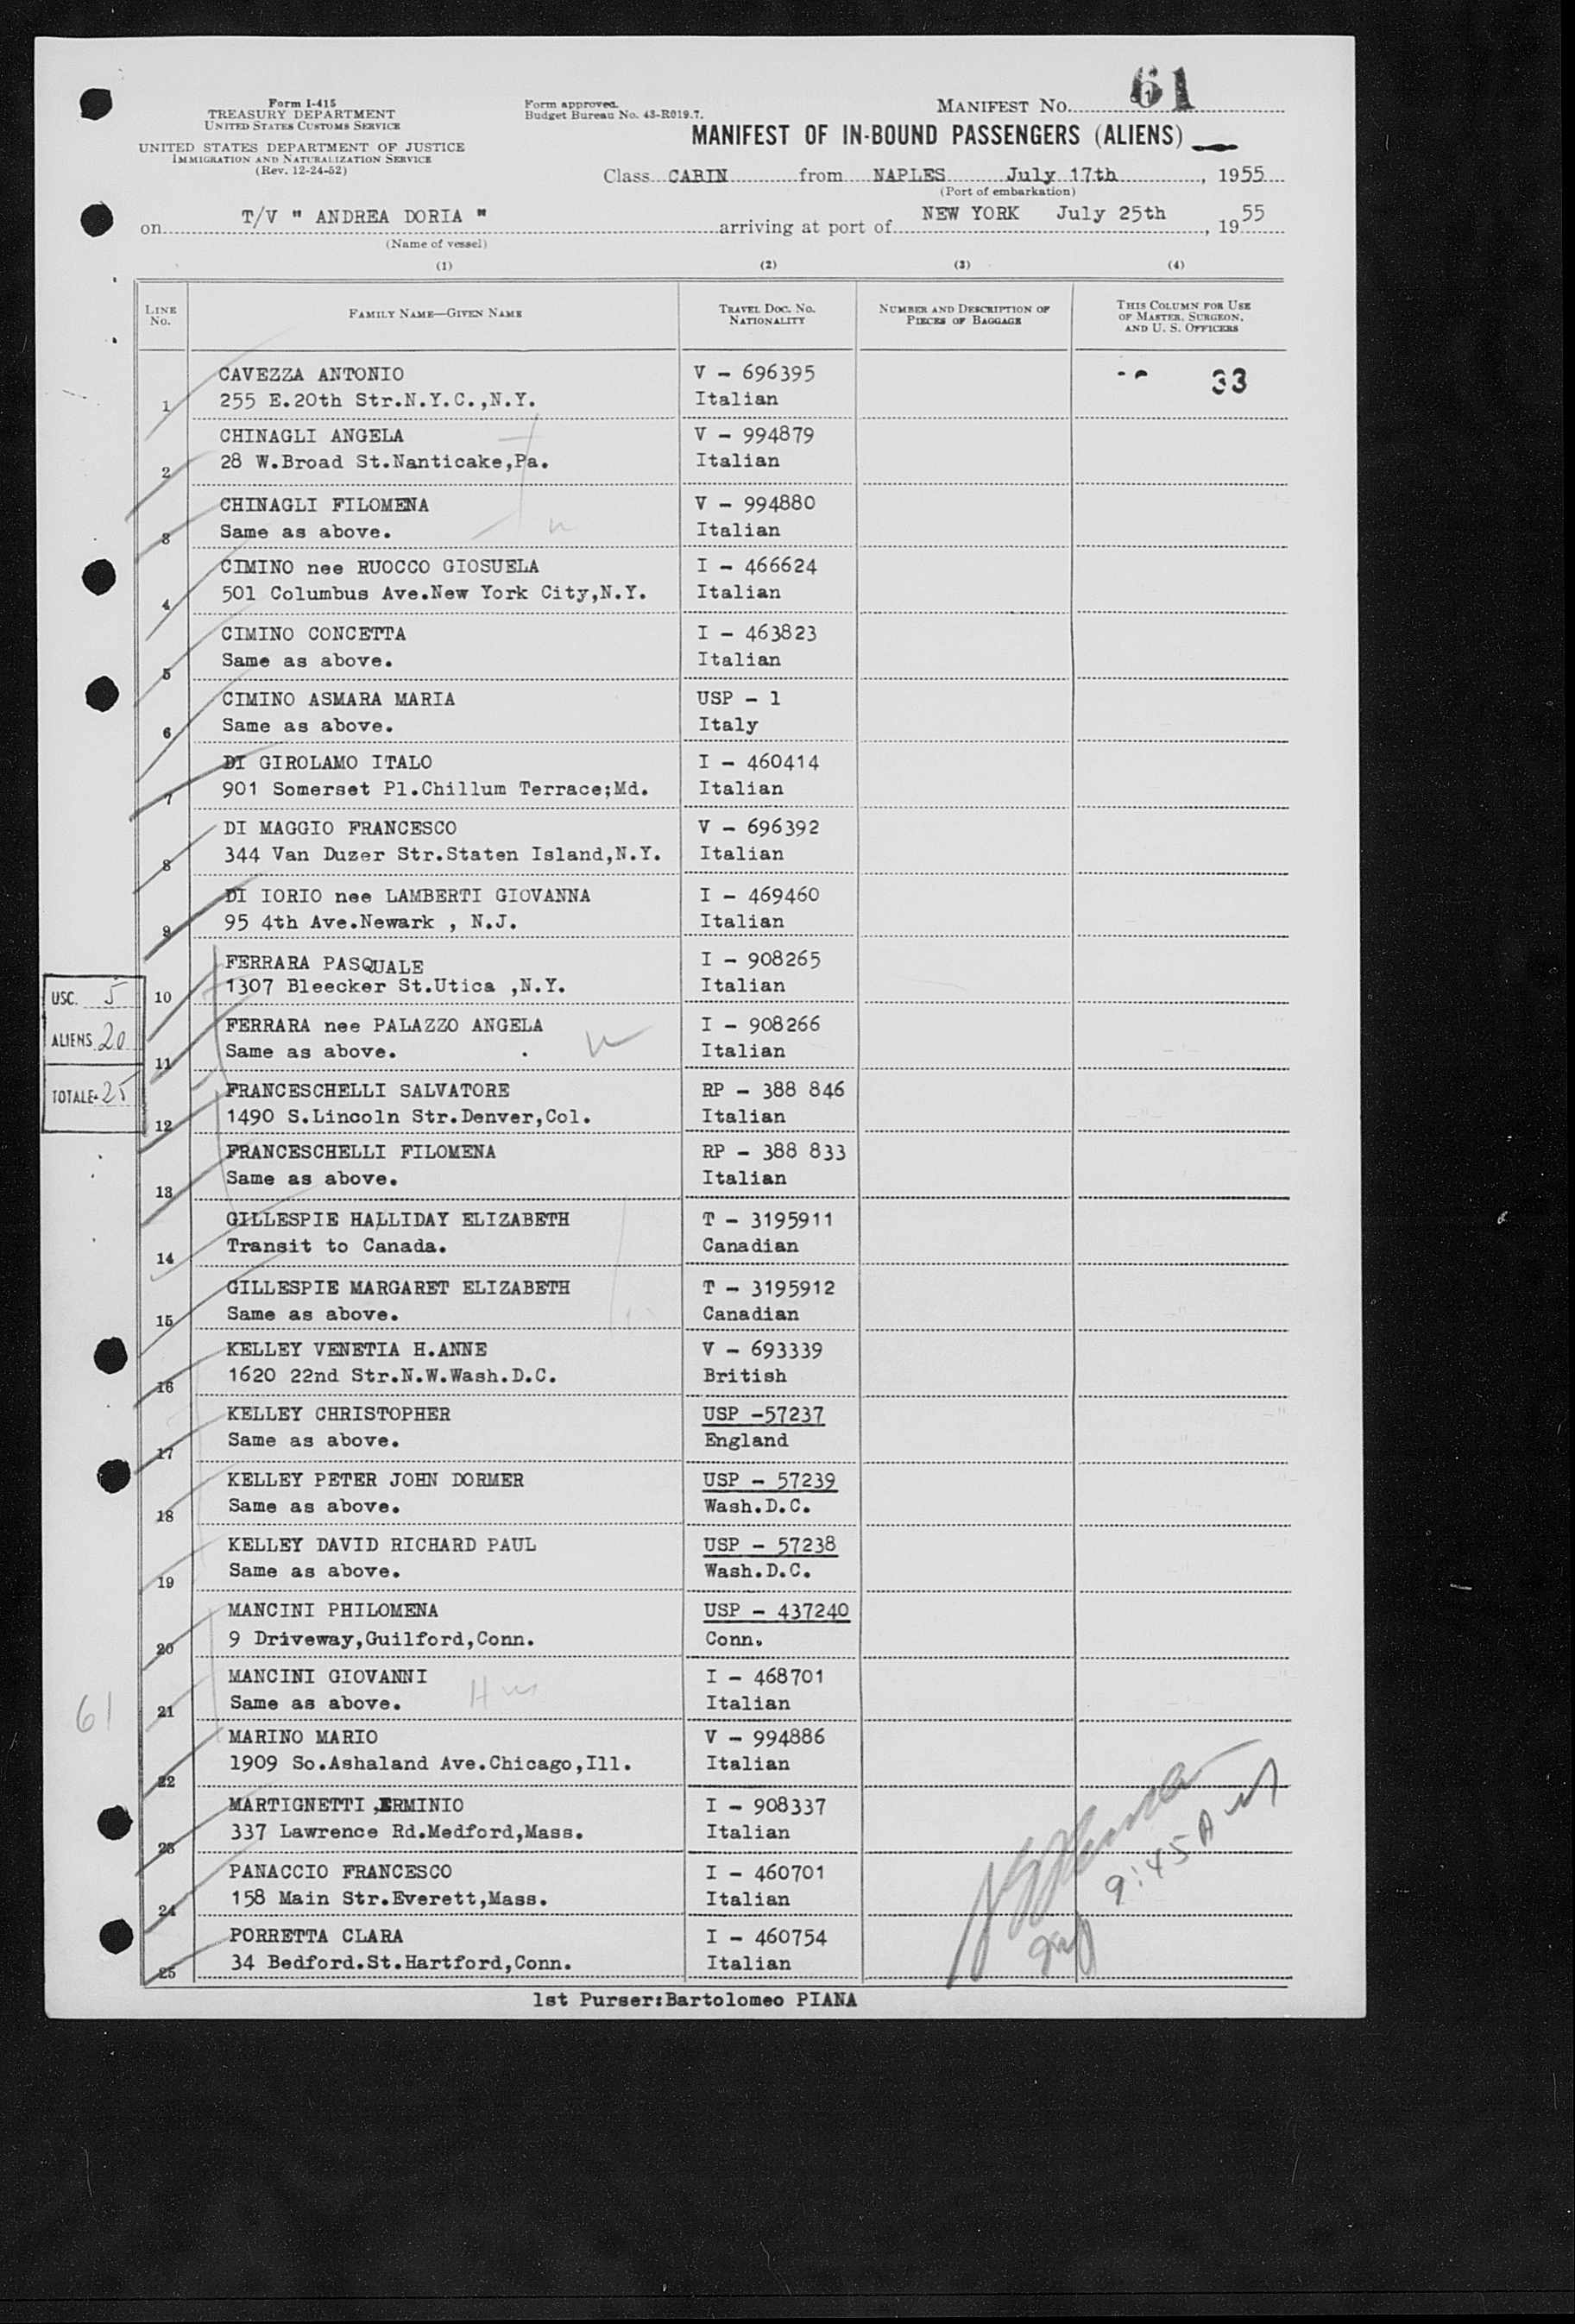 Form I-415
TREASURY DEPARTMENT
UNITED STATES CUSTOMS SERVICE
UNITED STATES DEPARTMENT OF JUSTICE
IMMIGRATION AND NATURALIZATION SERVICE
(Rev. 12-24-52)
Form approved.
Budget Bureau No. 43-R019.7.
MANIFEST NO. 61
MANIFEST OF IN-BOUND PASSENGERS (ALIENS)
Class CABIN from NAPLES July 17th, 1955
(Port of embarkation)
on T/V " ANDREA DORIA " arriving at port of NEW YORK July 25th, 1955
(Name of vessel)
(1) (2) (3) (4)
LINE No. FAMILY NAME—GIVEN NAME TRAVEL DOC. NO. NATIONALITY NUMBER AND DESCRIPTION OF PIECES OF BAGGAGE THIS COLUMN FOR USE OF MASTER, SURGEON, AND U. S. OFFICERS
CAVEZZA ANTONIO V - 696395 33
1 255 E.20th Str.N.Y.C.,N.Y. Italian
CHINAGLI ANGELA V - 994879
2 28 W.Broad St.Nanticake,Pa. Italian
CHINAGLI FILOMENA V - 994880
3 Same as above. Italian
CIMINO nee RUOCCO GIOSUELA I - 466624
4 501 Columbus Ave.New York City,N.Y. Italian
CIMINO CONCETTA I - 463823
5 Same as above. Italian
CIMINO ASMARA MARIA USP - 1
6 Same as above. Italy
DI GIROLAMO ITALO I - 460414
7 901 Somerset Pl.Chillum Terrace;Md. Italian
DI MAGGIO FRANCESCO V - 696392
8 344 Van Duzer Str.Staten Island,N.Y. Italian
DI IORIO nee LAMBERTI GIOVANNA I - 469460
9 95 4th Ave.Newark , N.J. Italian
FERRARA PASQUALE I - 908265
10 1307 Bleecker St.Utica ,N.Y. Italian
USC. 5
ALIENS 20
TOTALE 25
FERRARA nee PALAZZO ANGELA I - 908266
11 Same as above. Italian
FRANCESCHELLI SALVATORE RP - 388 846
12 1490 S.Lincoln Str.Denver,Col. Italian
FRANCESCHELLI FILOMENA RP - 388 833
13 Same as above. Italian
GILLESPIE HALLIDAY ELIZABETH T - 3195911
14 Transit to Canada. Canadian
GILLESPIE MARGARET ELIZABETH T - 3195912
15 Same as above. Canadian
KELLEY VENETIA H.ANNE V - 693339
16 1620 22nd Str.N.W.Wash.D.C. British
KELLEY CHRISTOPHER USP -57237
17 Same as above. England
KELLEY PETER JOHN DORMER USP - 57239
18 Same as above. Wash.D.C.
KELLEY DAVID RICHARD PAUL USP - 57238
19 Same as above. Wash.D.C.
MANCINI PHILOMENA USP - 437240
20 9 Driveway,Guilford,Conn. Conn.
MANCINI GIOVANNI I - 468701
21 Same as above. Italian
61
MARINO MARIO V - 994886
22 1909 So.Ashaland Ave.Chicago,Ill. Italian
MARTIGNETTI ,ERMINIO I - 908337
23 337 Lawrence Rd.Medford,Mass. Italian
PANACCIO FRANCESCO I - 460701
24 158 Main Str.Everett,Mass. Italian
9:45 A
PORRETTA CLARA I - 460754
25 34 Bedford.St.Hartford,Conn. Italian
1st Purser:Bartolomeo PIANA